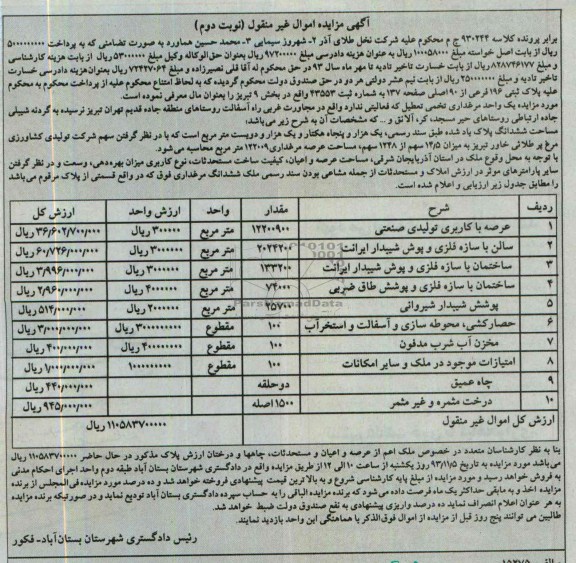 آگهی مزایده اموال غیر منقول (نوبت دوم)
برابر پرونده کلاسه ۹۳۰۲۴۴ ج م محکوم علیه شرکت نخل طلای آذر ۲- شهروز سیمایی ۳- محمد حسین هماورد به صورت تضامنی که به پرداخت ۵۰۰۰۰۰۰۰۰
ریال از بابت اصل خواسته مبلغ ۱۰۰۵۸۰۰۰ ریال به عنوان هزینه دادرسی مبلغ ۹۷۲۰۰۰۰ ریال بعنوان حق الوکاله وکیل مبلغ ۵۳۰۰۰۰۰ ریال از بابت هزینه کارشناسی
و مبلغ ۸۲۸۷۴۶۱۷۷ ریال از بابت خسارت تاخیر تادیه تا مهر ماه سال ۹۳ در حق محکوم له آقا قلی نصیرزاده و مبلغ ۷۲۴۴۷۰۶۴ ریال بعنوان هزینه دادرسی خسارت
تاخیر تادیه و مبلغ ۲۵۰۰۰۰۰۰ ریال از بابت نیم عشر دولتی هر دو در حق صندوق دولت محکوم گردیده که به لحاظ امتناع محکوم علیه از پرداخت محکوم به محکوم
علیه پلاک ثبتی ۱۹۶ فرعی از ۹۰ اصلی صفحه ۱۳۷ به شماره ثبت ۴۳۵۵۳ واقع در بخش ۹ تبریز را بعنوان مال معرفی نموده است.
مورد مزایده یک واحد مرغداری تخمی تعطیل که فعالیتی ندارد واقع در مجاورت غربی راه آسفالت روستاهای منطقه جاده قدیم تهران تبریز نرسیده به گردنه شبیلی
جاده ارتباطی روستاهای حیر مسجد، کر، آلانق و ... که مشخصات آن به شرح زیر می‌باشد؛
مساحت ششدانگ پلاک یاد شده طبق سند رسمی، یک هزار و پنجاه هکتار و یک هزار و دویست متر مربع است که با در نظر گرفتن سهم شرکت تولیدی کشاورزی
مرغ پر طلائی خاور تبریز به میزان ۱۴/۵ سهم از ۱۲۴۸ سهم، مساحت عرصه مرغداری ۱۲۲۰۰۹ متر مربع محاسبه می‌شود.
با توجه به محل وقوع ملک در استان آذربایجان شرقی، مساحت عرصه و اعیان، کیفیت ساخت مستحدثات، نوع کاربری میزان بهره‌دهی، وسعت و در نظر گرفتن
سایر پارامترهای موثر در ارزش املاک و مستحدثات از جمله مشاعی بودن سند رسمی ملک ششدانگ مرغداری فوق که در واقع قسمتی از پلاک مرقوم می‌باشد
را مطابق جدول زیر ارزیابی و اعلام شده است.
ردیف شرح مقدار واحد ارزش واحد ارزش کل
۱ عرصه با کاربری تولیدی صنعتی ۱۲۲۰۰۹۰۰ متر مربع ۳۰۰۰۰۰ ریال ۳۶/۶۰۲/۷۰۰/۰۰۰ ریال
۲ سالن با سازه فلزی و پوش شیبدار ایرانت ۲۰۲۴۲۰۰ متر مربع ۳۰۰۰۰۰۰ ریال ۶۰/۷۲۶/۰۰۰/۰۰۰ ریال
۳ ساختمان با سازه فلزی و پوش شیبدار ایرانت ۱۳۳۲۰۰ متر مربع ۳۰۰۰۰۰۰ ریال ۳/۹۹۶/۰۰۰/۰۰۰ ریال
۴ ساختمان با سازه فلزی و پوشش طاق ضربی ۷۴۰۰۰ متر مربع ۴۰۰۰۰۰۰ ریال ۲/۹۶۰/۰۰۰/۰۰۰ ریال
۵ پوشش شیبدار شیروانی ۲۵۷۰۰ متر مربع ۲۰۰۰۰۰۰ ریال ۵۱۴/۰۰۰/۰۰۰ ریال
۶ حصارکشی، محوطه سازی و آسفالت و استخر آب ۱۰۰ مقطوع ۳۰۰۰۰۰۰۰۰۰ ریال ۳/۰۰۰/۰۰۰/۰۰۰ ریال
۷ مخزن آب شرب مدفون ۱۰۰ مقطوع ۴۰۰۰۰۰۰۰۰ ریال ۴۰۰/۰۰۰/۰۰۰ ریال
۸ امتیازات موجود در ملک و سایر امکانات ۱۰۰ مقطوع ۱۰۰۰۰۰۰۰۰۰ ۱/۰۰۰/۰۰۰/۰۰۰ ریال
۹ چاه عمیق دو حلقه ۴۴۰/۰۰۰/۰۰۰ ریال
۱۰ درخت مثمره و غیر مثمر ۱۵۰۰ اصله ۹۴۵/۰۰۰/۰۰۰ ریال
ارزش کل اموال غیر منقول ۱۱۰۵۸۳۷۰۰۰۰۰ ریال
بنا به نظر کارشناسان متعدد در خصوص ملک اعم از عرصه و اعیان و مستحدثات، چاهها و درختان ارزش پلاک مذکور در حال حاضر ۱۱۰۵۸۳۷۰۰۰۰۰ ریال
می‌باشد مورد مزایده به تاریخ ۹۳/۱۱/۵ روز یکشنبه از ساعت ۱۰ الی ۱۲ از طریق مزایده واقع در دادگستری شهرستان بستان آباد طبقه دوم واحد اجرای احکام مدنی
به فروش خواهد رسید و مورد مزایده از مبلغ پایه کارشناسی شروع و به بالاترین قیمت پیشنهادی فروخته خواهد شد و ده درصد مورد مزایده فی‌المجلس از برنده
مزایده اخذ و به مابقی حداکثر یک ماه فرصت داده می‌شود که برنده مزایده الباقی را به حساب سپرده دادگستری بستان آباد تودیع نماید و در صورتیکه برنده مزایده
به هر عنوان اعلام انصراف نماید ده درصد واریزی پیشنهادی به نفع صندوق دولت ضبط خواهد شد.
طالبین می توانند پنج روز قبل از مزایده از اموال فوق‌الذکر با هماهنگی این واحد بازدید نمایند.
رئیس دادگستری شهرستان بستان‌آباد- فکور